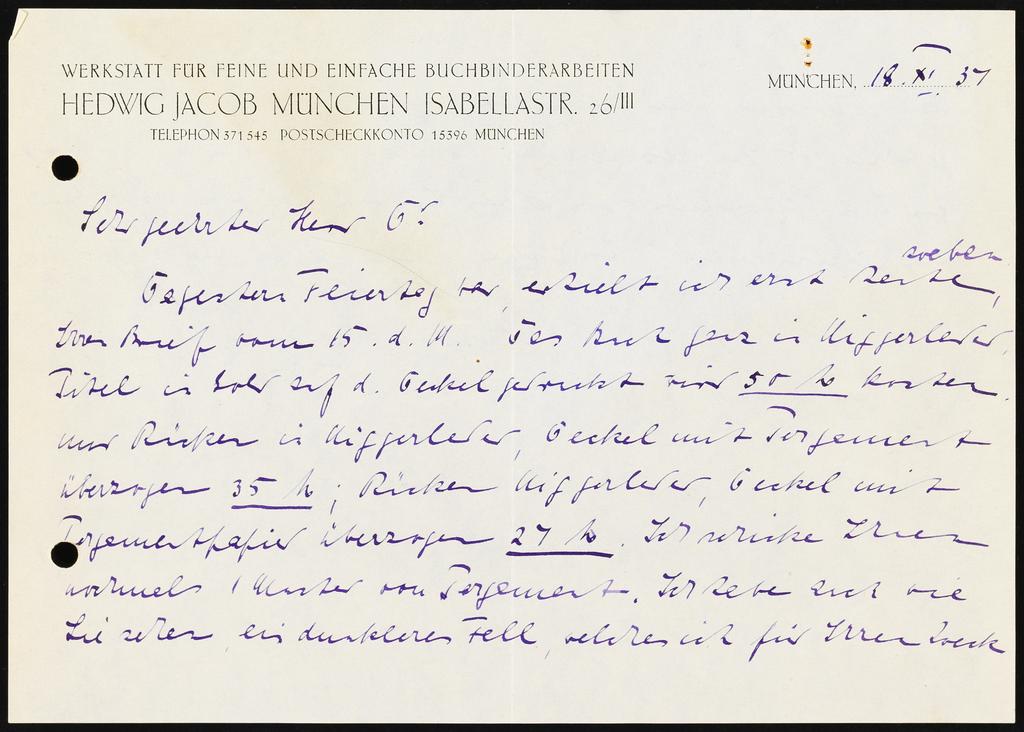 WERKSTATT FÜR FEINE UND EINFACHE BUCHBINDERARBEITEN
HEDWIG JACOB MÜNCHEN ISABELLASTR. 26/III
TELEPHON 371545 POSTSCHECKKONTO 15396 MÜNCHEN
MÜNCHEN, 18. XI. 37
Sehr geehrter Herr Dr
Da gestern Feiertag war, erhielt ich erst heute, soeben
Ihren Brief vom 15. d. M. Das Buch ganz in Niggerleder,
Titel in Gold auf d. Deckel gedruckt wird 50 M kosten.
nur Rücken in Niggerleder, Deckel mit Pergament
überzogen 35 M; Rücken Niggerleder, Deckel mit
Pergamentpapier überzogen 27 M. Ich schicke Ihnen
nochmals 1 Muster von Pergament. Ich habe auch wie
Sie sehen ein dunkleres Fell, welches ich für Ihren Zweck